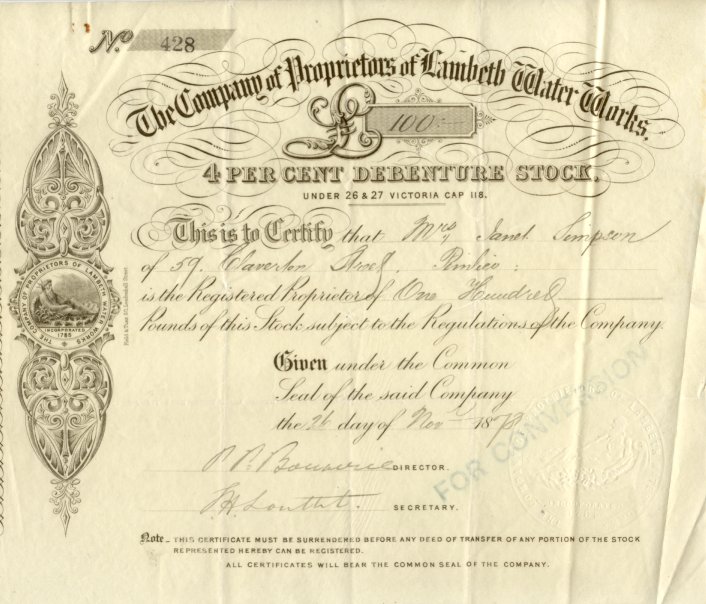 No 428
The Company of Proprietors of Lambeth Water Works.
£ 100:-:-
4 PER CENT DEBENTURE STOCK.
UNDER 26 & 27 VICTORIA CAP 118.
This is to Certify that Mrs Janet Simpson
of 59. Claverton Street, Pimlico:
is the Registered Proprietor of One Hundred
Pounds of this Stock subject to the Regulations of the Company.
THE COMPANY OF PROPRIETORS OF LAMBETH WATER WORKS
INCORPORATED
1785
Given under the Common
Seal of the said Company
the 26 day of Nov 187
FOR CONVERSION
DIRECTOR.
SECRETARY.
Note_ THIS CERTIFICATE MUST BE SURRENDERED BEFORE ANY DEED OF TRANSFER OF ANY PORTION OF THE STOCK
REPRESENTED HEREBY CAN BE REGISTERED.
ALL CERTIFICATES WILL BEAR THE COMMON SEAL OF THE COMPANY.